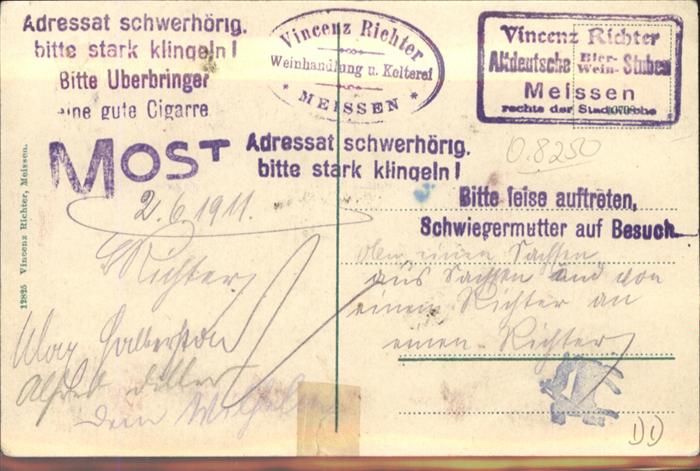 Adressat schwerhörig.
bitte stark klingeln!
Bitte Überbringer
eine gute Cigarre
Vincenz Richter
Weinhandlung u. Kelterei
* MEISSEN *
Vincenz Richter
Altdeutsche Bier- Wein- Stuben
Meissen
rechts der Stadtkirche
MOST
Adressat schwerhörig.
bitte stark klingeln!
0.8250
2.6.1911.
Bitte leise auftreten,
Schwiegermutter auf Besuch.
12825 Vincenz Richter, Meissen.
Richter
einen Sachsen
aus Sachsen und von
einem Richter an
einen Richter
Max
Alfred
Dein Wilhelm